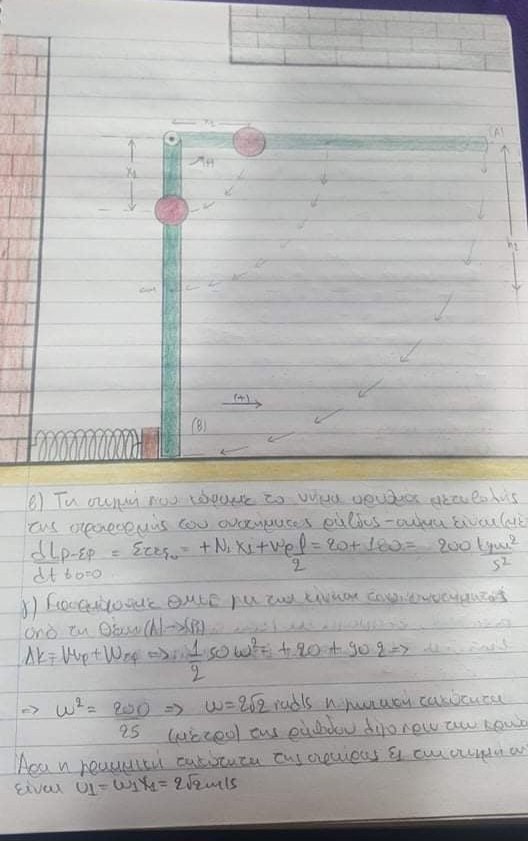 x₂
(A)
x₁
(+)
h₂
cm
(+)
(B)
β) Τη στιγμή που κόψαμε το νήμα ο ρυθμός μεταβολής
της στροφορμής του συστήματος ράβδος-σώμα είναι
dLρ-Σρ/dt t₀=0 = Στεξω = +N₁x₁+Wρ l/2 = 20+180 = 200 kgm²/s²
γ) ΘΜΚΕ για την κίνηση
από τη θέση (A)→(B)
ΔΚ = Wwρ + W ⇒ 1/2 50 ω² = +20 + 90·2 ⇒
⇒ ω² = 200/25 ⇒ ω = 2√2 rad/s η γωνιακή ταχύτητα
(μέτρο) της ράβδου λίγο πριν την
Άρα η γραμμική ταχύτητα της σφαίρας Σ₁ τη στιγμή
είναι υ₁ = ω₁x₁ = 2√2 m/s